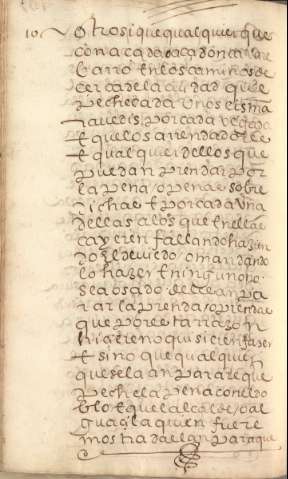 10. Otrosi que qualquier que
con açada o açadon ca
barro en los caminos de
cerca de la ciudad que le
peche cada uno seis ma
ravedis por cada vegada
e que los arrendadores
e qualquier dellos que
puedan prendar por
la pena o penas sobre
dichas e por cada una
dellas a los que en ellas
cayeren fallando hazien
do el deviedo o mandando
lo hazer e ninguno no
sea osado de les anpa
rar la prenda o prendas
que por esta rrazon
hizieren o quisieren fazer
e si no que qualquier
que se la anparare que
peche la pena con el do
blo e que el alcalde o al
guazil a quien fuere
mostrada el anpara que